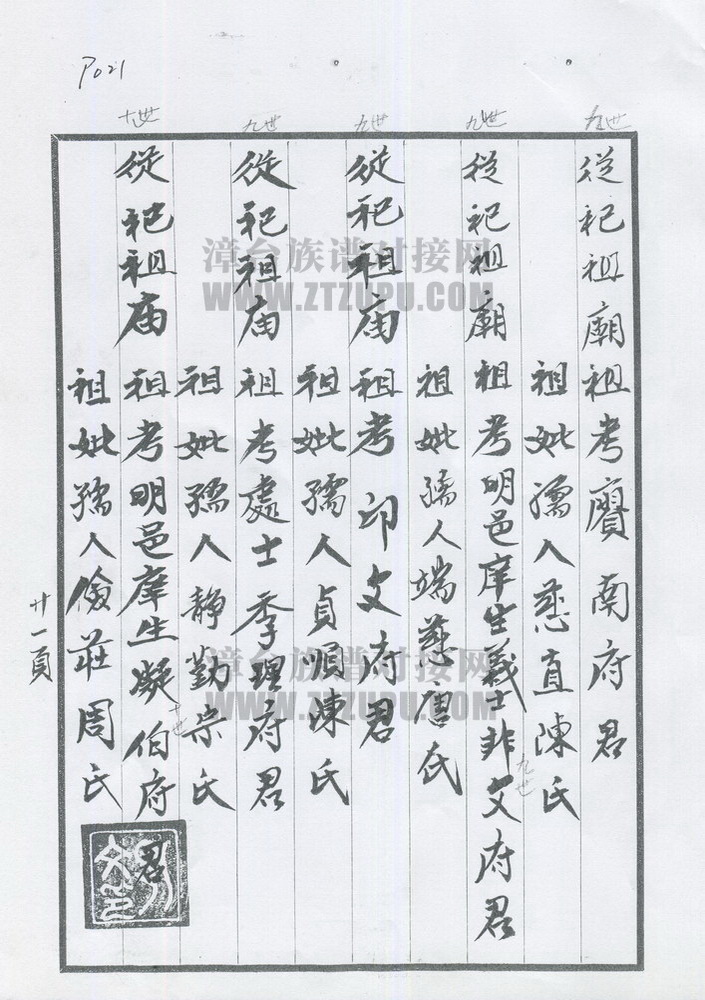 P021
九世
從祀祖廟祖考賡南府君
祖妣孺人慈直陳氏
九世
從祀祖廟祖考明邑庠生義士非文府君
九世
祖妣孺人端慈唐氏
九世
從祀祖庙祖考印文府君
祖妣孺人貞順陳氏
九世
從祀祖庙祖考處士季理府君
祖妣孺人靜勤宗氏
十世
從祀祖庙祖考明邑庠生凝伯府君
十世
祖妣孺人儉莊周氏
廿一頁
漳台族谱对接网
WWW.ZTZUPU.COM
漳台族谱对接网
WWW.ZTZUPU.COM